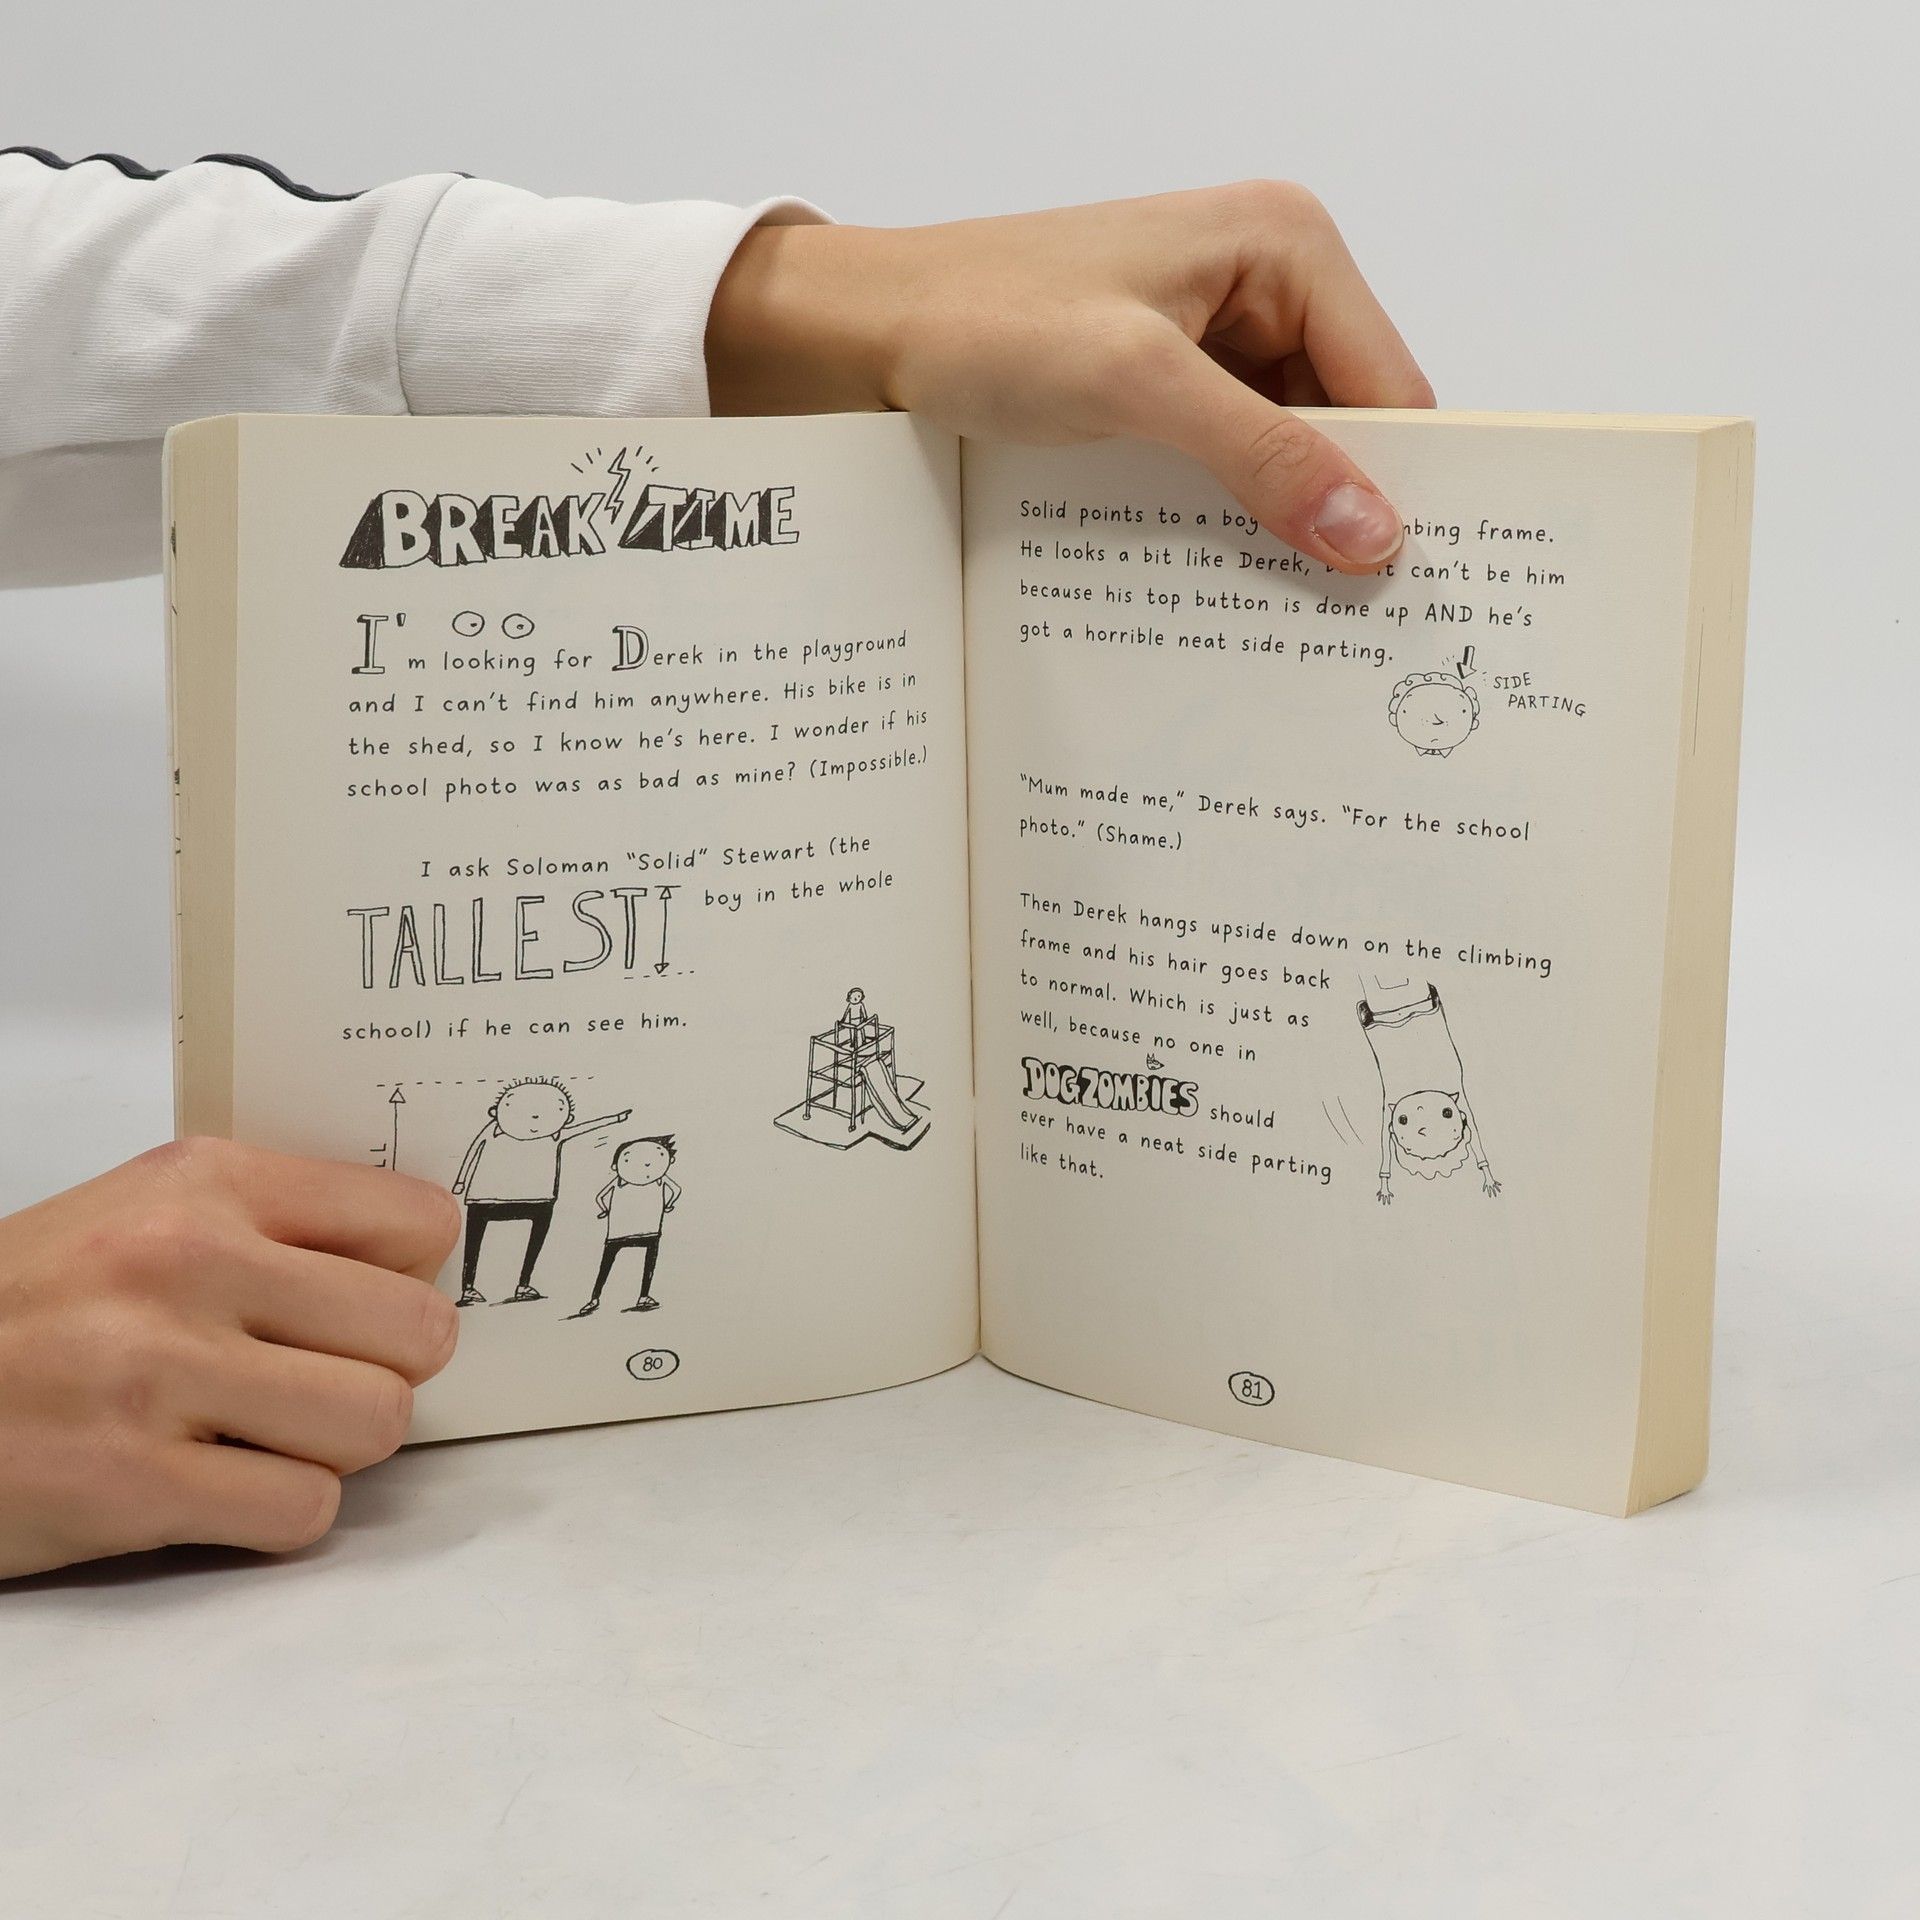 BREAK TIME
I'm looking for Derek in the playground
and I can't find him anywhere. His bike is in
the shed, so I know he's here. I wonder if his
school photo was as bad as mine? (Impossible.)
I ask Soloman "Solid" Stewart (the
TALLEST boy in the whole
school) if he can see him.
80
Solid points to a boy frame.
He looks a bit like Derek, can't be him
because his top button is done up AND he's
got a horrible neat side parting.
SIDE
PARTING
"Mum made me," Derek says. "For the school
photo." (Shame.)
Then Derek hangs upside down on the climbing
frame and his hair goes back
to normal. Which is just as
well, because no one in
DOGZOMBIES should
ever have a neat side parting
like that.
81